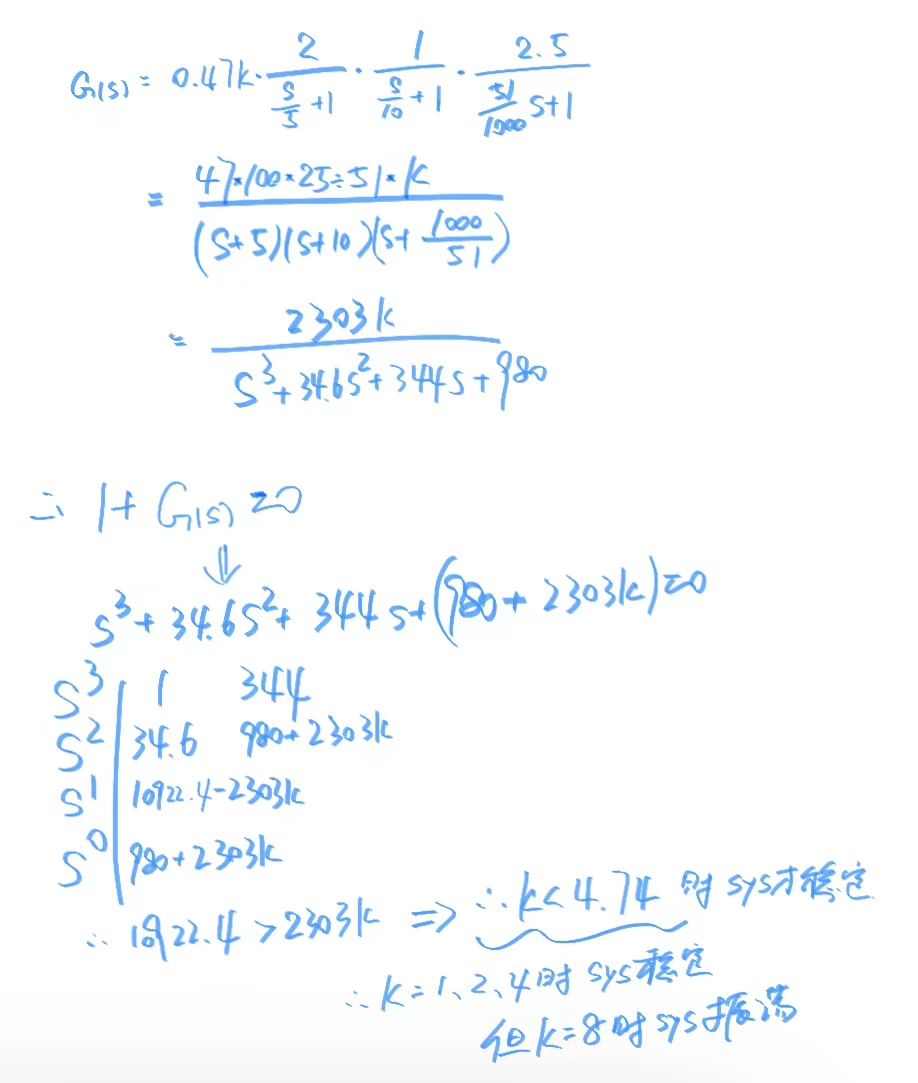 G(s) = 0.47k · 2/(s/5 + 1) · 1/(s/10 + 1) · 2.5/(51/1000 s+1)
= 47*100*25÷51*k / (s+5)(s+10)(s+1000/51)
= 2303k / s³+34.6s²+344s+980
∴ 1+G(s)=0
⇓
s³+34.6s²+344s+(980+2303k)=0
s³ | 1 344
s² | 34.6 980+2303k
s¹ | 10922.4-2303k
s⁰ | 980+2303k
∴ 10922.4>2303k ⇒ ∴k<4.74 时sys才稳定
∴k=1、2、4时sys稳定
但k=8时sys振荡